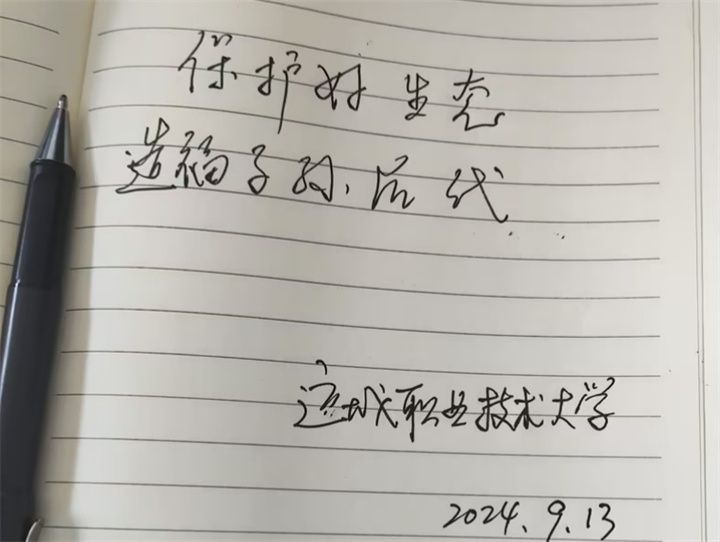 保护好生态
造福子孙后代
运城职业技术大学
2024.9.13